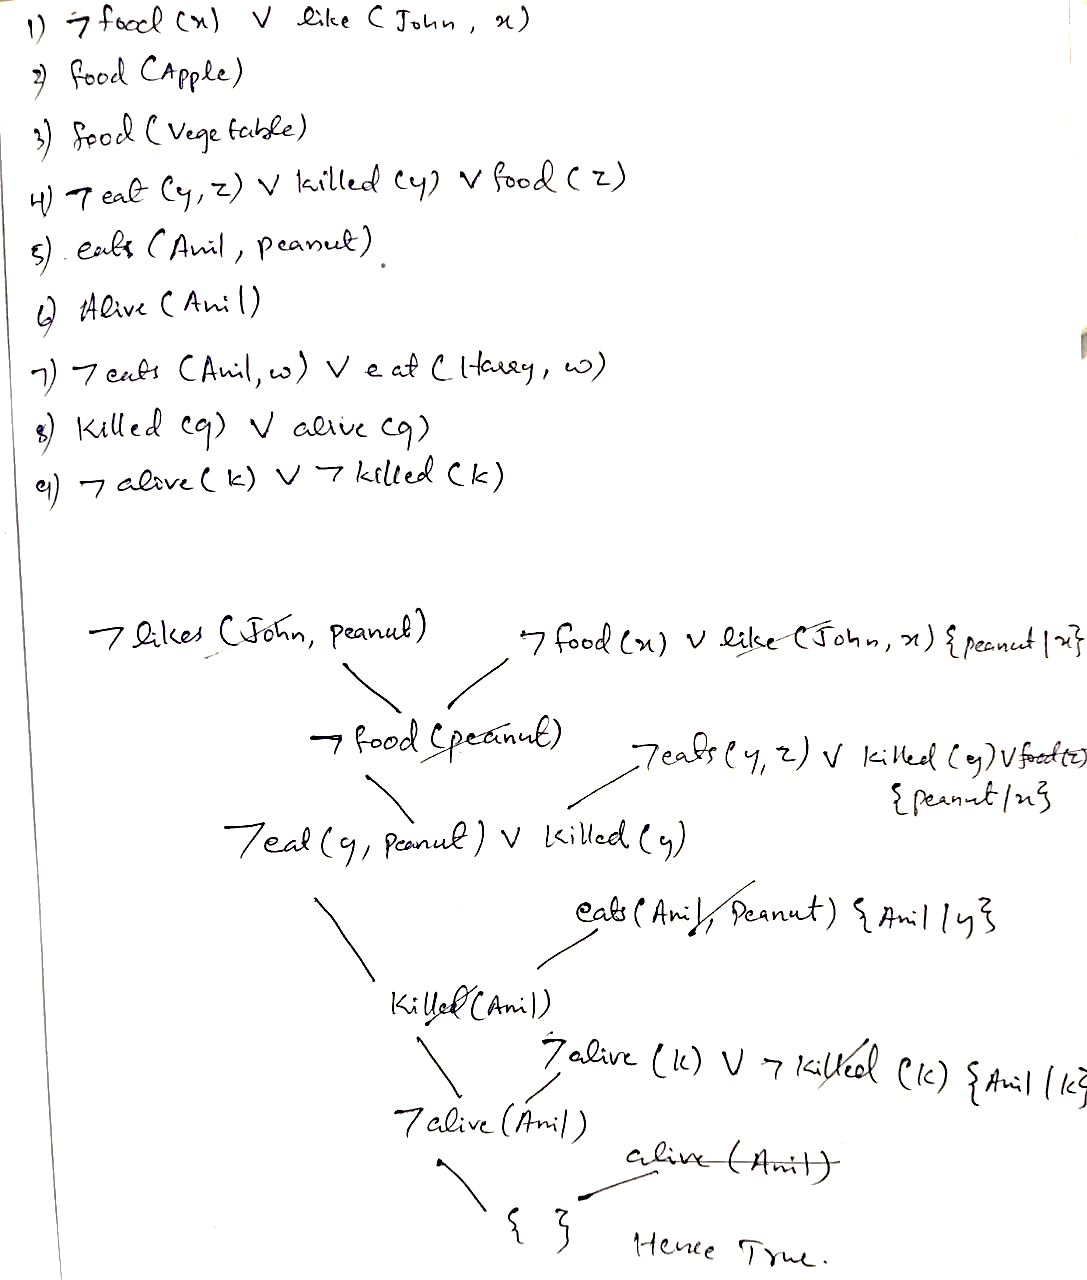 1) ¬ food (x) ∨ like ( John , x)
2) food (Apple)
3) food ( Vegetable)
4) ¬ eat (y, z) ∨ killed (y) ∨ food ( z)
5) . eats ( Anil , peanut) .
6) Alive ( Anil)
7) ¬ eats (Anil, w) ∨ eat ( Harry, w)
8) Killed (g) ∨ alive (g)
9) ¬ alive ( k) ∨ ¬ killed (k)
¬ likes (John, peanut) ¬ food (x) ∨ like (John, x) {peanut | x}
¬ food (peanut) ¬eats (y, z) ∨ killed (y) ∨ food(z)
{peanut / x}
¬eat (y, peanut) ∨ killed (y)
eats ( Anil, Peanut) { Anil / y}
Killed (Anil)
¬alive (k) ∨ ¬ killed (k) {Anil / k}
¬alive (Anil)
alive (Anil)
{ } Hence True.